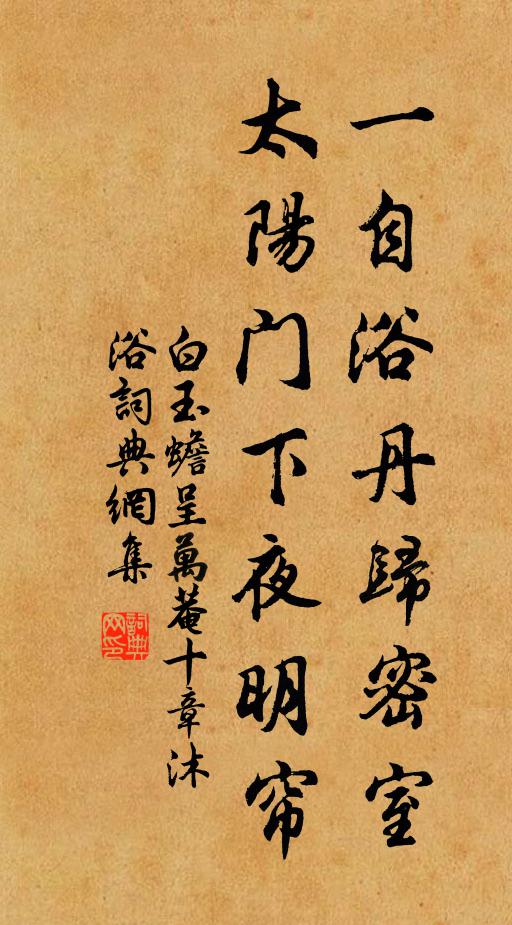 一自浴丹歸密室
太陽门下夜明帘
白玉蟾呈萬菴十章沐
浴詞典網集
詞典
网印